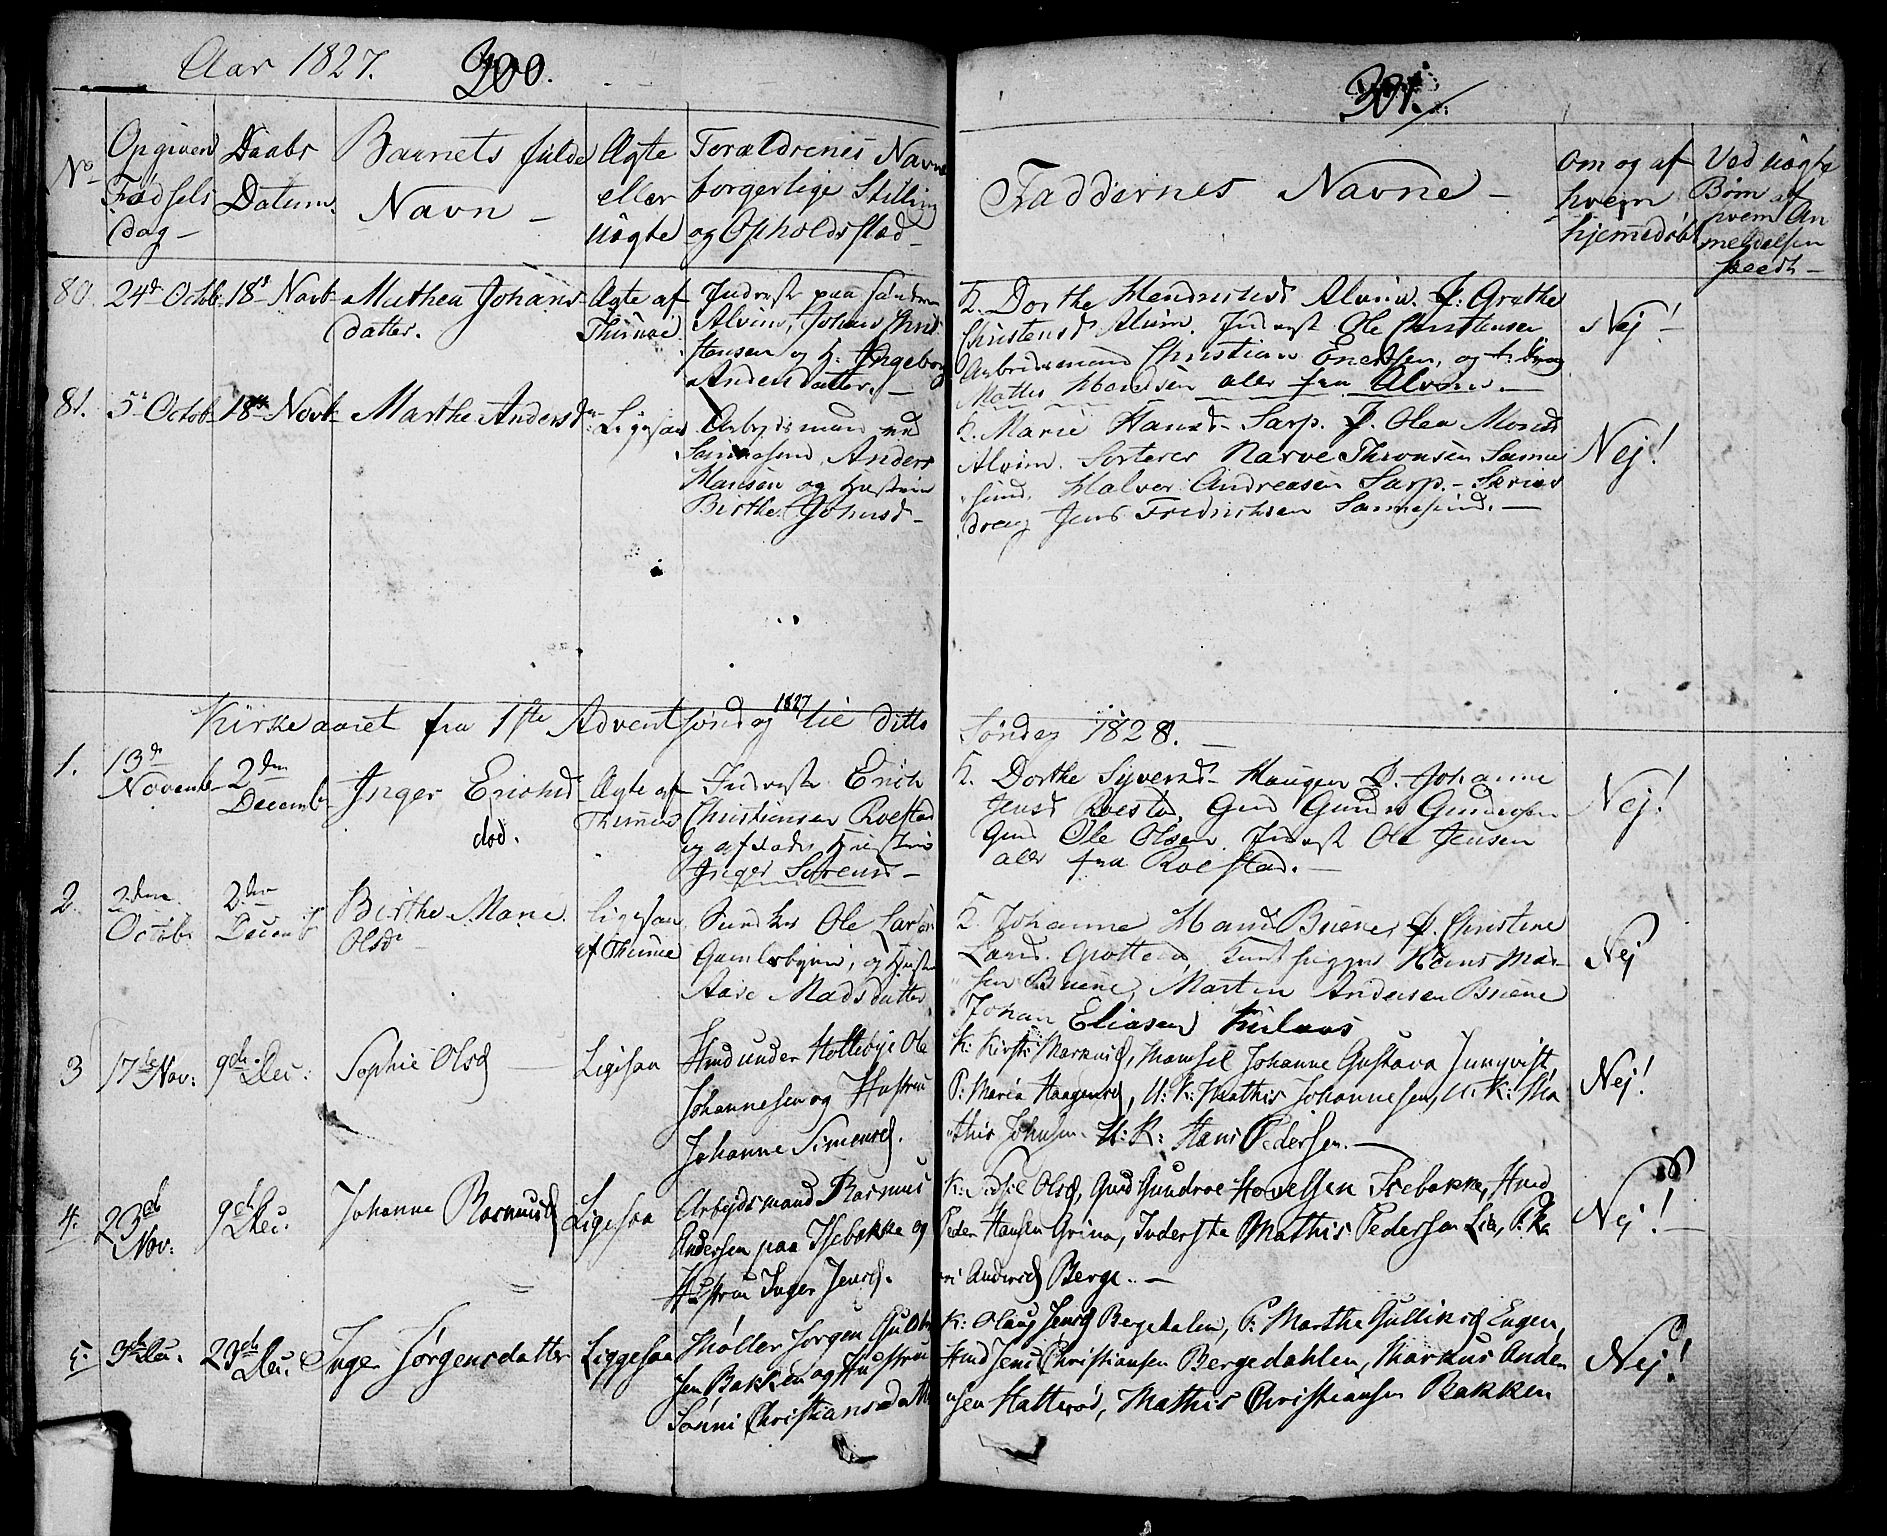 Aar 1827.
300.
301.
No
Opgiven Fødsels dag
Daabs Datum
Barnets fulde Navn
Ægte eller Uægte
Forældrenes Navne borgerlige Stilling og Opholdsstad
Faddernes Navne
Om og af hvem hjemmedøbt
Ved Uægte Børn af hvem Anmeldelsen skeedt
80. 24d Octob. 18d Novb Mathea Johans
datter.
Ægte af
Inderst paa Søndre
Alvim, Johan
stensen og H. Ingeborg
Andersdatter.
K. Dorthe Alvim. P: Grethe
Christensd Alvim. Inderst Ole Christensen
Arbeidsmand Christian og
Mathis Hansen alle fra Alvim.
Nej!
81. 5t Octob 18de Novb Marthe Andersd
Ligesaa
Arbejdsmand ved
Sannesund, Anders
Hansen og Hustrue
Birthe Johnsd
K. Marie Hansd Sarp. P. Olea
Alvim. Sorterer Narve Thronsen Sanne
sund. Halvor Andreasen Sarp.
dreng Jens Fredrichsen Sannesund.
Nej!
Kirkeaaret fra 1ste Advent søndag 1827 til ditto
Søndag 1828.
1. 13de Novemb 2den Decemb Inger Erichsd
død.
Ægte af
Inderste Erich
Christiansen Roestad
og afdøde Hustrue
Inger Sørensd
K. Dorthe Syversd Haugen P. Johanne
Jensd Roestad, Gmd Gunder Gundersen
Gmd Ole Olsen. Inderst Ole Jensen
alle fra Roestad.
Nej!
2. 2den Octob 2den Decemb Birthe Marie
Olsdr
Ligesaa
Ole Larsen
Gamlebyen, og Hustru
Aase Madsdatter
K. Johanne Hansd Buene P. Christine
Larsd. Hans
sen Buene, Morten Andersen Buene
Johan Eliasen
Nej
3 17de Nov: 9de Dec: Sophie Olsd
Ligesaa
Hmd under Hollebye Ole
Johannesen og Hustrue
Johanne Simensd.
K: Kirsti Markusd, Mamsel Johanne Gustava Junqvist,
P: Maria Haagensd, U: K: Mathis Johannesen, U: K: Ma
this Johnsen. U: K: Hans Pedersen.
Nej!
4. 23de Nov: 9de Dec. Johanne Rasmusd
Ligesaa
Arbejdsmand Rasmus
Andersen paa Isebakke og
Hustrue Inger Jensd.
K: Olsd, Gmd Gundroe Hovelsen Isebakke, Hmd
Peder Hansen Grina, Inderste Mathis Pedersen Lie, P: Ka
ri Andersd Berge.
Nej!
5. 3de Dec. 23de Dec. Inger Jørgensdatter
Liggesaa
Møller Jørgen Guldb
sen Bakken og Hustrue
Sønni Christiansdatter
K: Olaug Jensd Bergedalen, P: Marthe Gulliksd Engen,
Hmd Jens Christiansen Bergedahlen, Markus Ander
sen Hatterød, Mathis Christiansen Bakken
Nej!